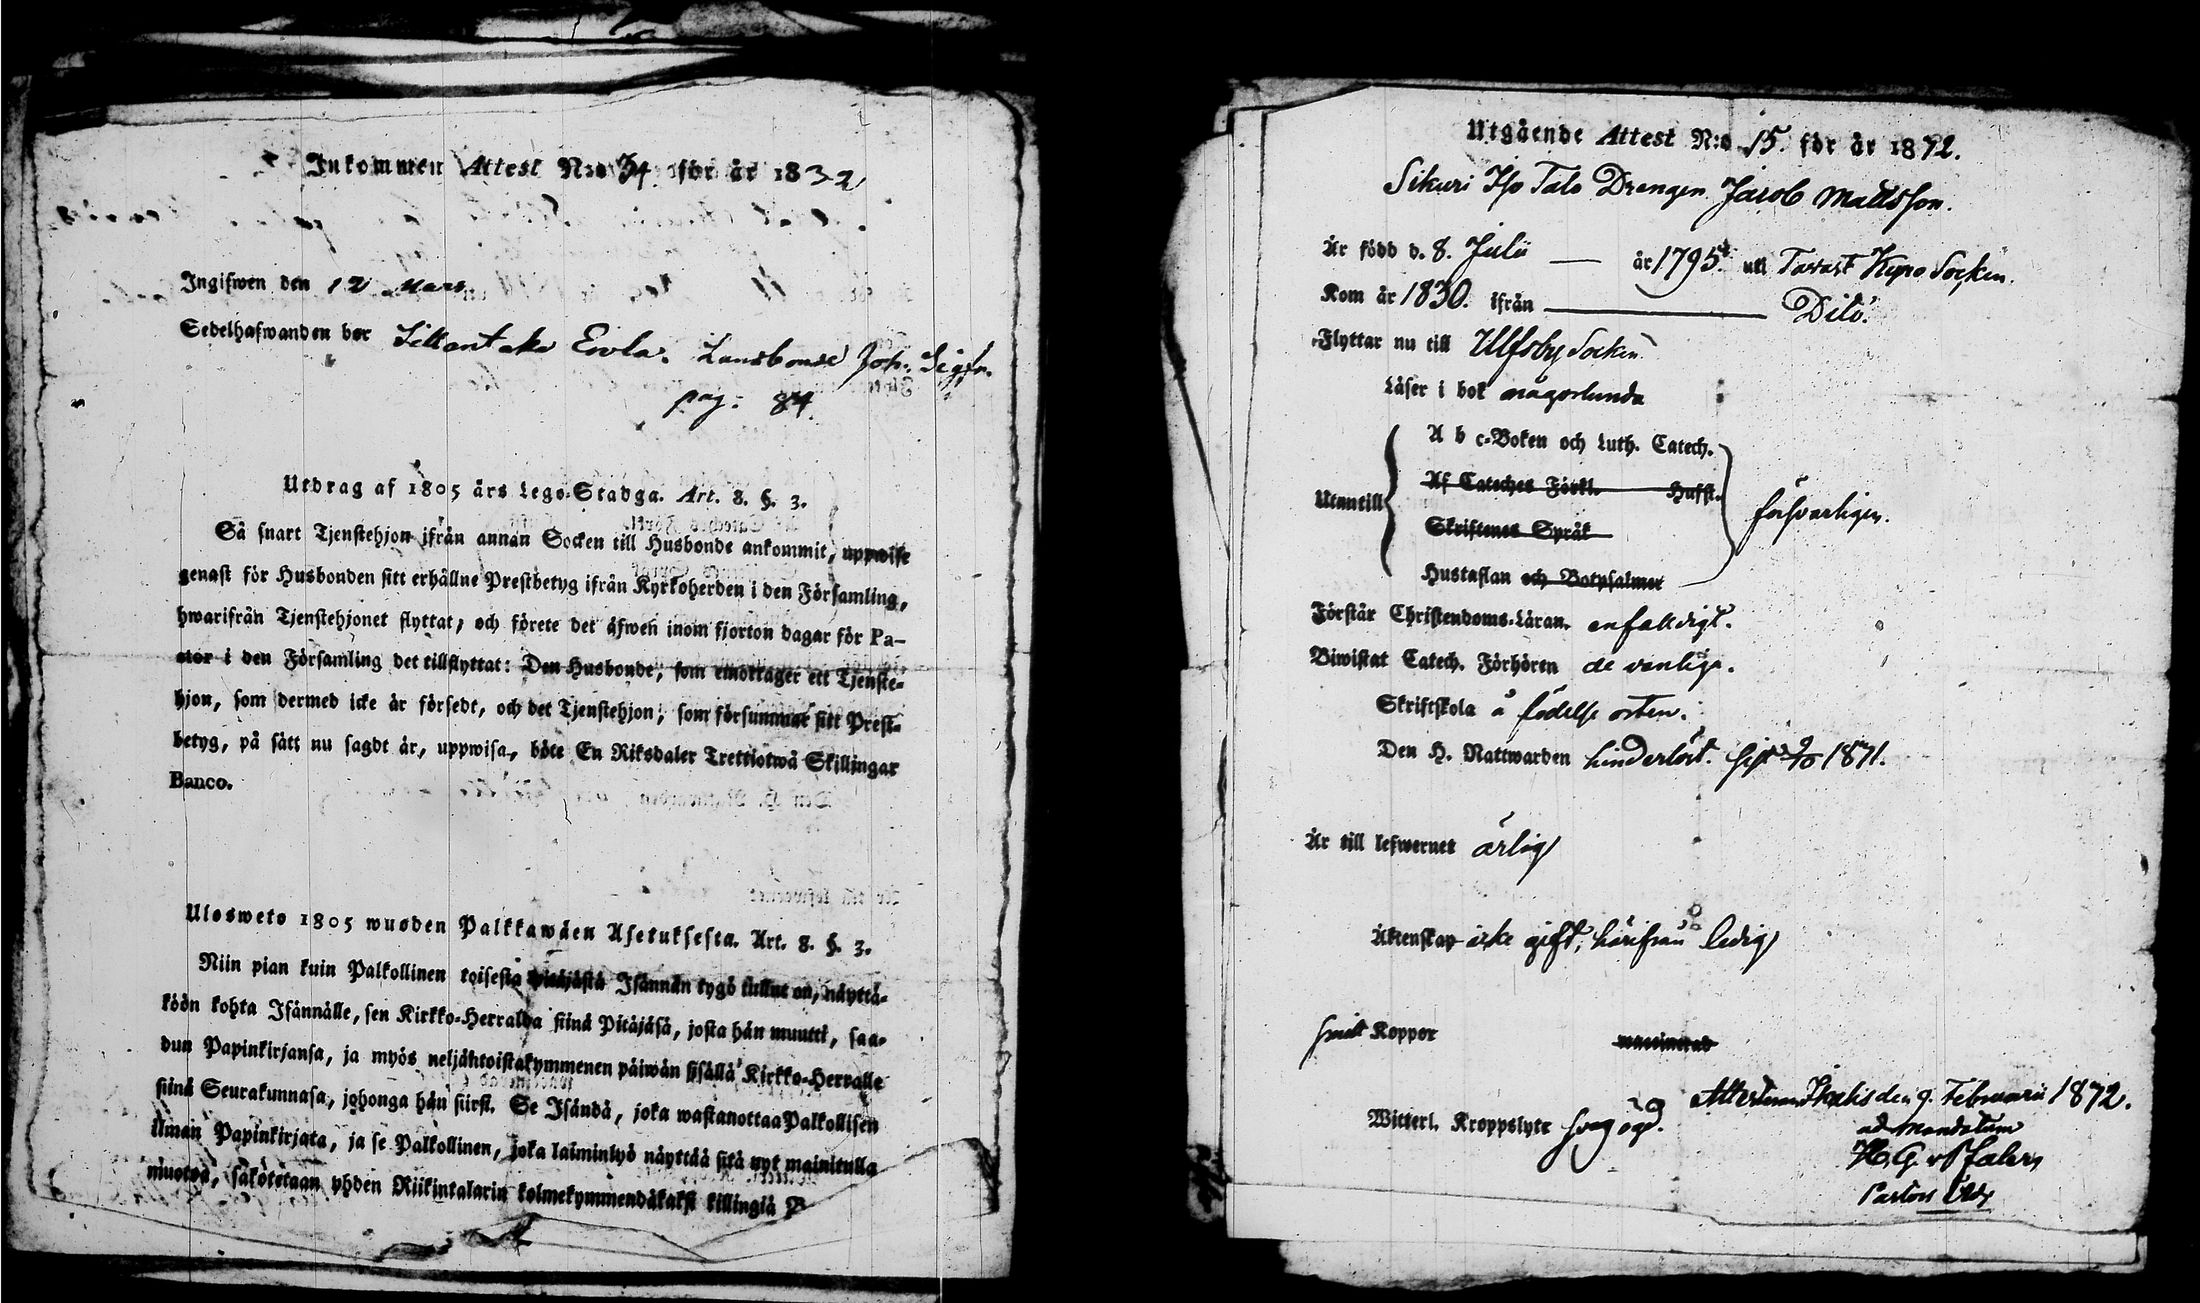 Inkommen Attest N:o 34 för år 1832
Ingifwen den 12 Mars
Sedelhafwanden bor Lansbonde Joh. Sigfr.
pag: 84
Utdrag af 1805 års Lego-Stadga. Art. 8. §. 3.
Så snart Tjenstehjon ifrån annan Socken till Husbonde ankommit, uppwise
genast för Husbonden sitt erhållne Prestbetyg ifrån Kyrkoherden i den Församling,
hwarifrån Tjenstehjonet flyttat, och förete det äfwen inom fjorton dagar för Pa-
stor i den Församling det tillflyttat: Den Husbonde, som emottager ett Tjenste-
hjon, som dermed icke är försedt, och det Tjenstehjon, som försummar sitt Prest-
betyg, på sätt nu sagdt är, uppwisa, böte En Riksdaler Trettiotwå Skillingar
Banco.
Ulosweto 1805 wuoden Palkkawäen Asetuksesta. Art. 8. §. 3.
Niin pian kuin Palkollinen toisesta pitäjästä Isännän tygö tullut on, näyttä-
köön kohta Isännälle, sen Kirkko-Herralda siinä Pitäjäsä, josta hän muutti, saa-
dun Papinkirjansa, ja myös neljähtoistakymmenen päiwän sisällä Kirkko-Herralle
siinä Seurakunnasa, johonga hän siirst. Se Isändä, joka wastanottaa Palkollisen
ilman Papinkirjata, ja se Palkollinen, joka laiminlyö näyttää sitä nyt mainitulla
muotoa, sakotetaan yhden Riikintalarin kolmekymmendäkaksi killingiä B
Utgående Attest N:o 15. för år 1872.
Sikuri Iso Talo Drengen Jacob Mattsson.
Är född d. 8. Julii — år 1795. uti Tavast Kyro Socken.
Kom år 1830. ifrån — Dito.
Flyttar nu till Ulfsby Socken
Läser i bok någorlunda
A b c-Boken och Luth. Catech.
Af Cateches Förkl. Husft.
Utantill Skriftenes Språk försvarligen.
Hustaflan och Botpsalmer
Förstår Christendoms-Läran. enfaldigt.
Biwistat Catech. Förhören de vanliga.
Skriftskola å födelse orten.
Den H. Nattwarden hinderlöst. sist 9/10 1871.
Är till lefwernet ärlig
Äktenskap icke gift, härifrån ledig
Koppor waccinerad
Ikalis den 9. Februarii 1872.
Witterl. Kroppslyte svag
ad mandatum
Pastors Adj